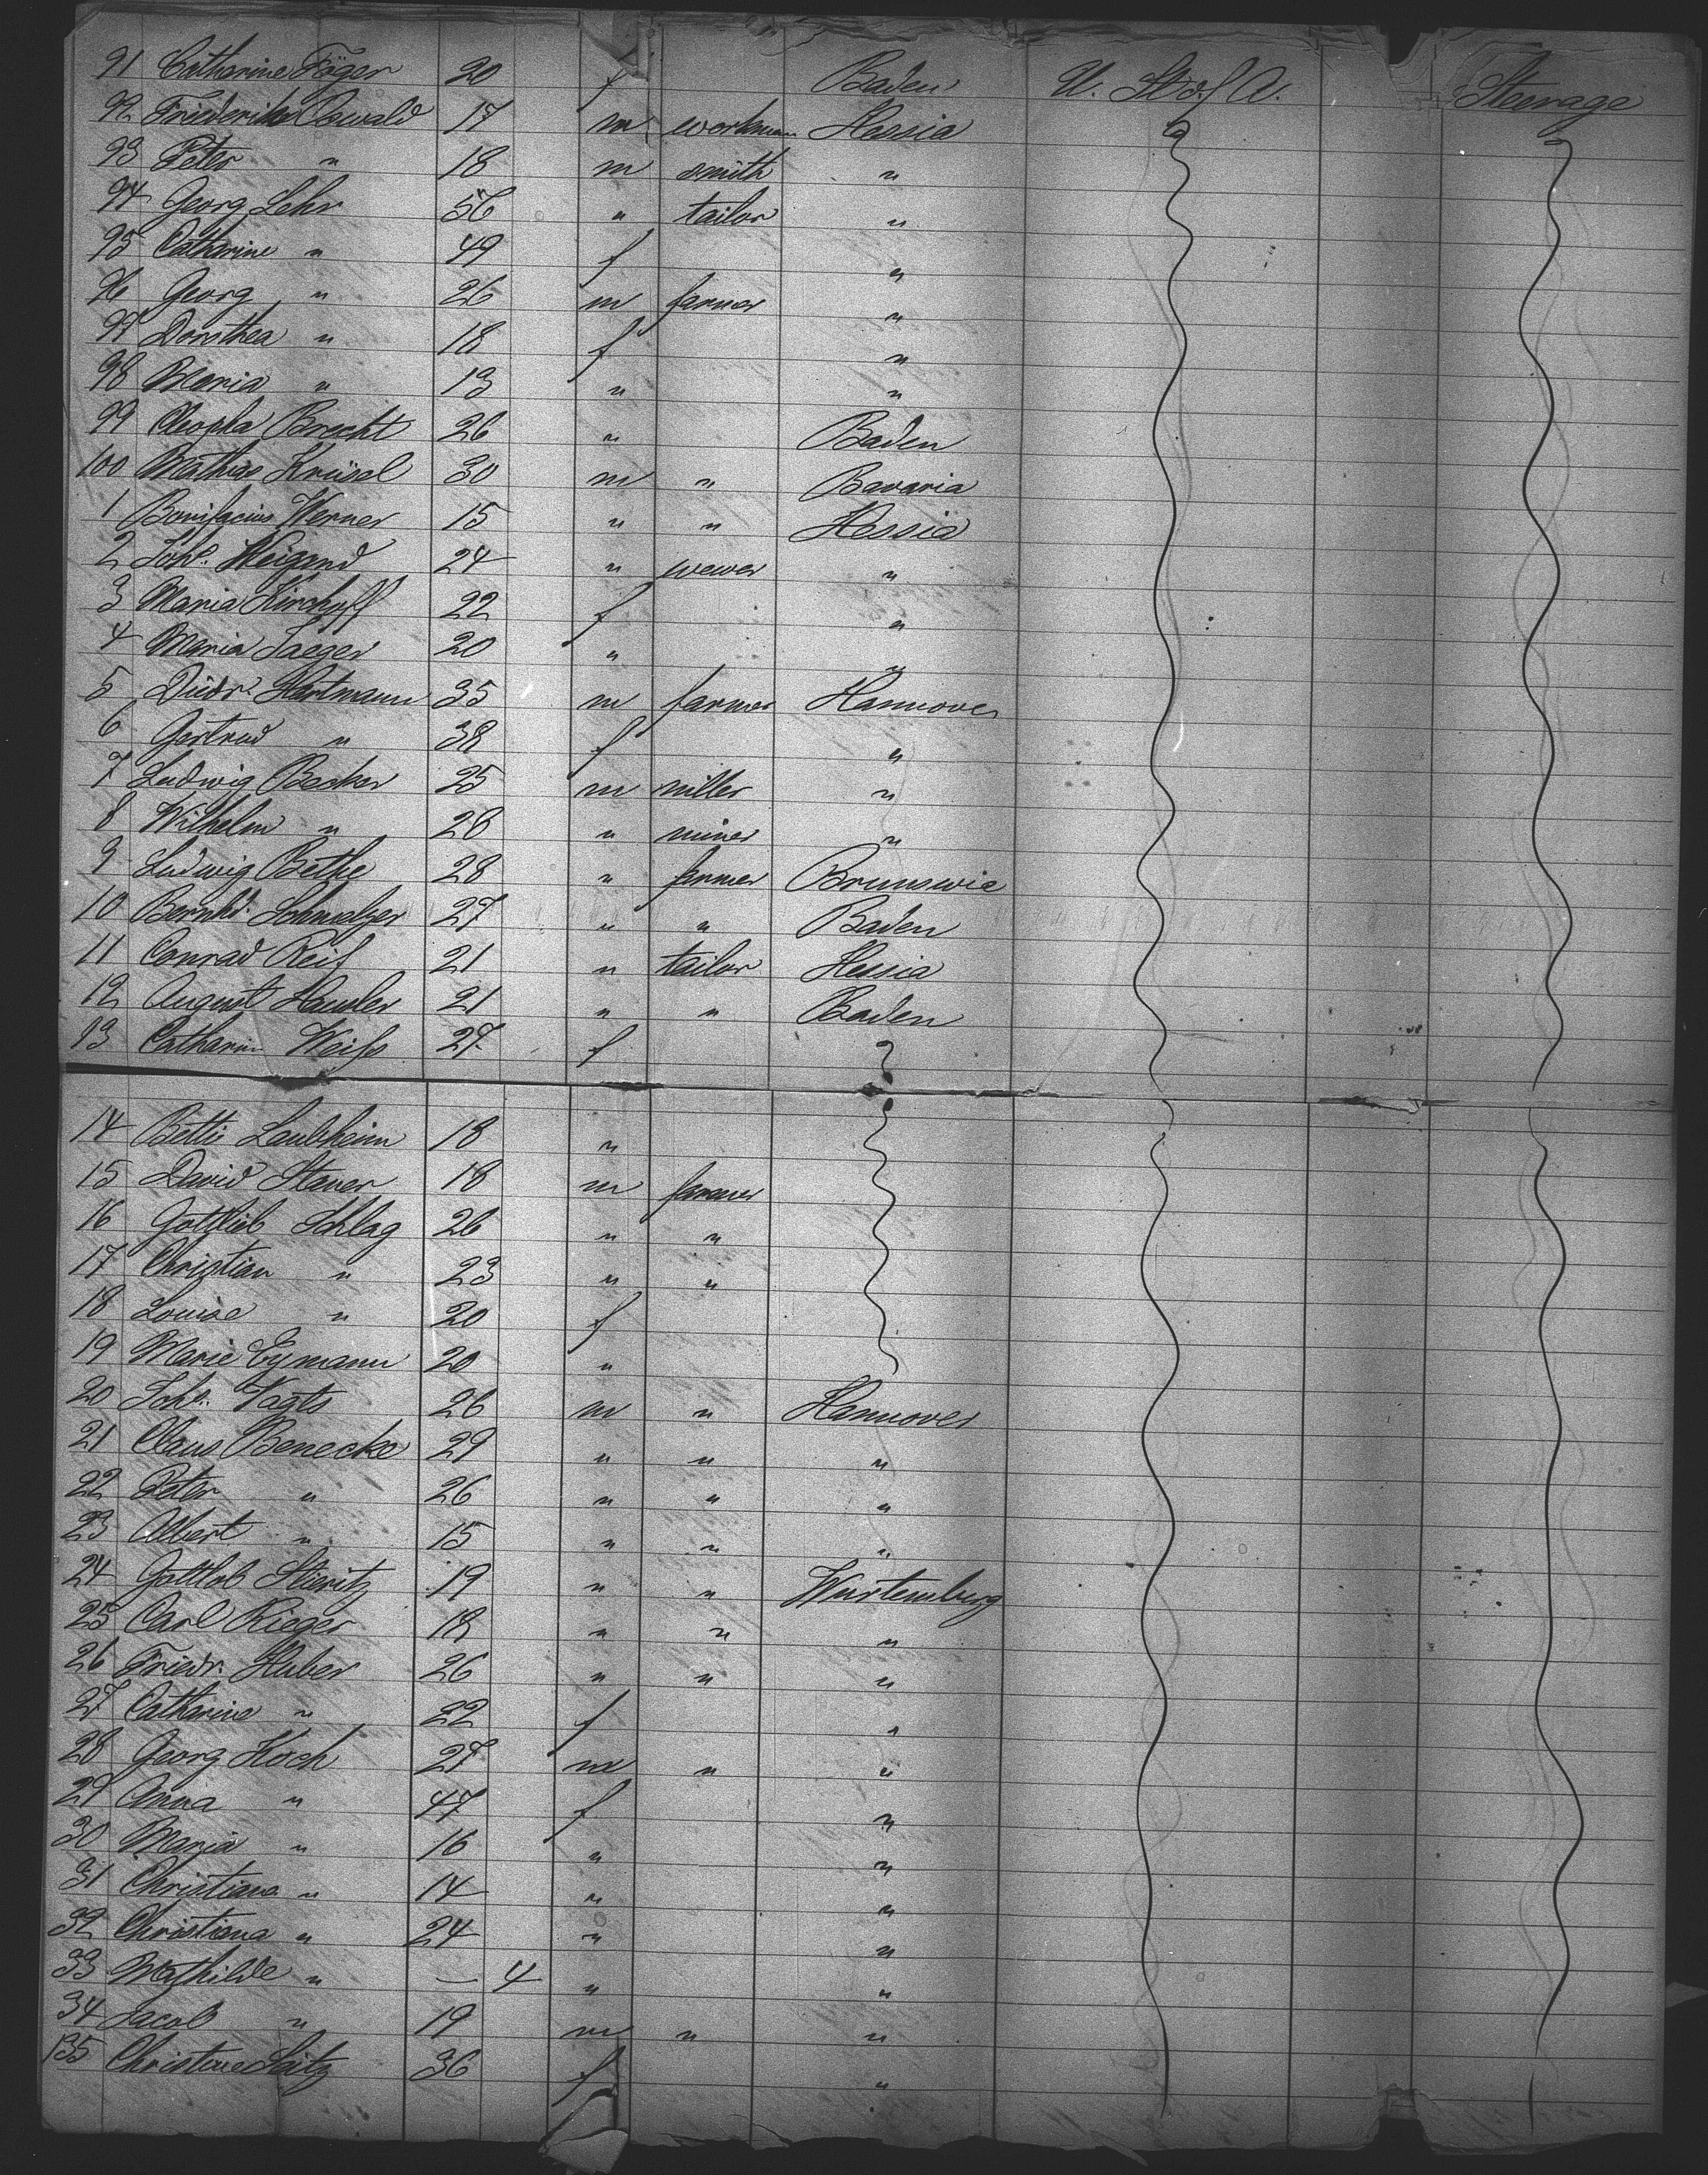 91 Catharine Jäger 20 f Baden U. St. of A. Steerage
92 Friederike Oswald 17 m workman Hessia
93 Peter " 18 m smith "
94 Georg Lehr 56 " tailor "
95 Catharine " 49 f "
96 Georg " 26 m farmer "
97 Dorothea " 18 f "
98 Maria " 13 " "
99 Brecht 26 " Baden
100 Mathias 30 m " Bavaria
1 Bonifacius Werner 15 " " Hessia
2 Joh. Weigand 24 " wewer "
3 Maria Kirchhoff 22 f "
4 Maria Jaeger 20 " "
5 Diedr. Hartmann 35 m farmer Hannover
6 Gertrud " 38 f "
7 Ludwig Becker 25 m miller "
8 Wilhelm " 26 " miner "
9 Ludwig Bethe 28 " farmer Brunswic
10 Bernhd. Schmelzer 27 " " Baden
11 Conrad Reif 21 " tailor Hessia
12 August Hausler 21 " " Baden
13 Catharin Weiss 27 f
14 Bettie Laubheim 18 "
15 David Stauer 18 m farmer
16 Gottlieb Schlag 26 " "
17 Christian " 23 " "
18 Louise " 20 f
19 Marie Eymann 20 "
20 Joh. Vagts 26 m " Hannover
21 Claus Benecke 29 " " "
22 Peter " 26 " " "
23 Albert " 15 " " "
24 Gottlob 19 " " Wurtemberg
25 Carl Rieger 18 " " "
26 Friedr. Huber 26 " " "
27 Catharine " 22 f "
28 Georg Koch 27 m " "
29 Anna " 47 f "
30 Maria " 16 " "
31 Christiana " 14 " "
32 Christiana " 24 " "
33 Mathilde " — 4 " "
34 Jacob " 19 m " "
135 Christine Seitz 36 f "